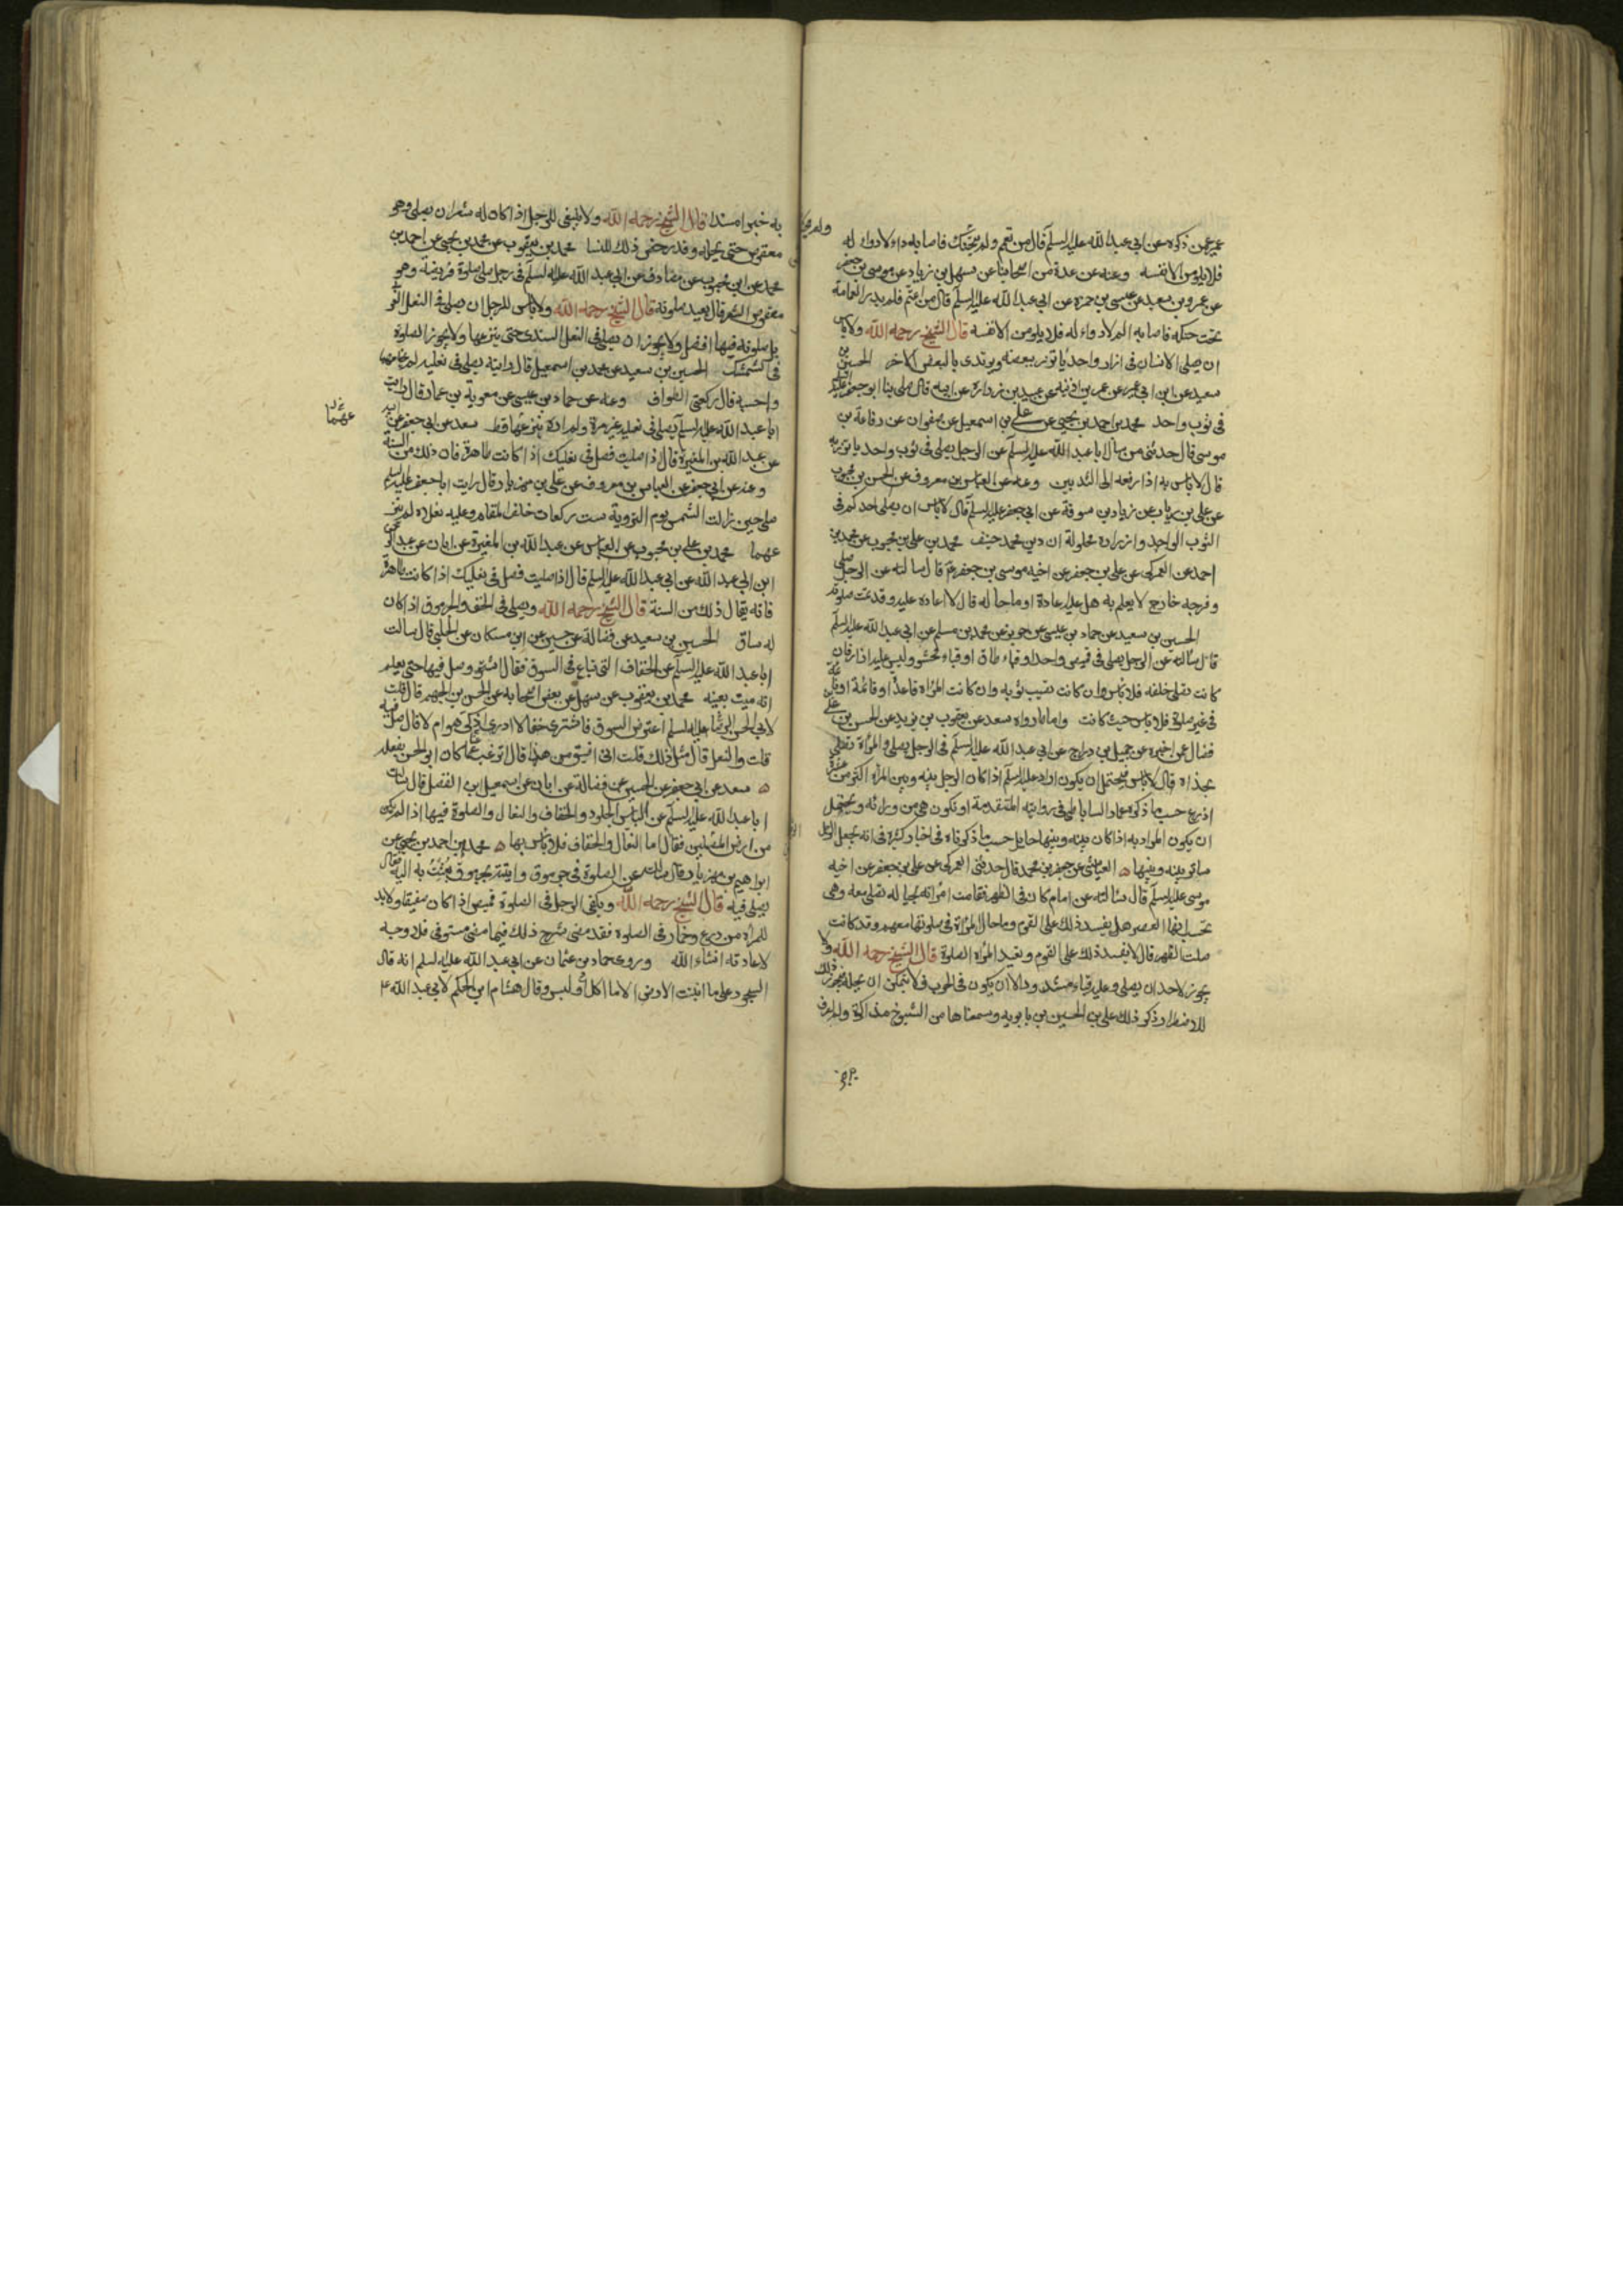 عمير عمن ذكره عن ابي عبد الله عليه السلم قال من تعمم ولم يتحنك فاصابه داء لا دواء له
فلا يلومن الا نفسه وعنه عن عدة من اصحابنا عن سهل بن زياد عن موسى بن جعفر
عن عمرو بن سعيد عن عيسى بن حمزه عن ابي عبد الله عليه السلم قال من اعتم فلم يدر العمامة
تحت حنكه فاصابه الم لا دواء له فلا يلومن الا نفسه قال الشيخ رحمه الله ولا باس
ان يصلي الانسان في ازار واحد ياتزر ببعضه ويرتدى بالبعض الاخر الحسين بن
سعيد عن ابن ابي عمير عن عمر بن اذينه عن عبيد بن زرارة عن ابيه قال صلى بنا ابو جعفر عليه السلم
في ثوب واحد محمد بن احمد بن يحيى عن علي بن اسمعيل عن صفوان عن رفاعة بن
موسى قال حدثني من سال ابا عبد الله عليه السلم عن الرجل يصلي في ثوب واحد ياتزر به
قال لا باس به اذا رفعه الى الثديين وعنه عن العباس بن معروف عن الحسن بن محبوب
عن علي بن رياب عن زياد بن سوقة عن ابي جعفر عليه السلم قال لا باس ان يصلي احدكم في
الثوب الواحد وازراره محلولة ان دين محمد حنيف محمد بن علي بن محبوب عن محمد بن
احمد عن العمركي عن علي بن جعفر عن اخيه موسى بن جعفر ع قال سالته عن الرجل صلى
وفرجه خارج لا يعلم به هل عليه اعادة او ما حاله قال لا اعاده عليه وقد تمت صلوته
الحسين بن سعيد عن حماد بن عيسى عن حريز عن محمد بن مسلم عن ابي عبد الله عليه السلم
قال سالته عن الرجل يصلي في قميص واحد او قباء طاق او قباء محشو وليس عليه ازار فان
كانت تصلي خلفه فلا باس وان كانت تصيب ثوبه وان كانت المراة قاعدة او قائمة او نائمة
في غير صلوة فلا باس حيث كانت واما ما رواه سعد عن يعقوب بن يزيد عن الحسن بن علي
فضال عمن اخبره عن جميل بن دراج عن ابي عبد الله عليه السلم في الرجل يصلي والمراة تصلي
بحذاه قال لا باس فيحتمل ان يكون اراد عليه السلم اذا كان الرجل بينه وبين المراه اكثر من عشرة
اذرع حسب ما ذكره عمار الساباطي في روايته المتقدمة او تكون هي من ورائه ويحتمل
ان يكون المراد به اذا كان بينه وبينها حايل حسب ما ذكرناه في اخبار كثيرة في انه يجعل الرجل
ساترا بينه وبينها ه العياشي عن جعفر بن محمد قال حدثني العمركي عن علي بن جعفر عن اخيه
موسى عليه السلم قال سالته عن امام كان في الظهر فقامت امراته بحياله تصلي معه وهي
تحسب انها العصر هل يفسد ذلك على القوم وما حال المراة في صلوتها معهم وقد كانت
صلت الظهر قال لا يفسد ذلك على القوم وتعيد المراه الصلوة قال الشيخ رحمه الله ولا
يجوز لاحد ان يصلي وعليه قباء مشدود الا ان يكون في الحرب فلا يتمكن ان يحله فيجوز ذلك
للاضطرار ذكر ذلك علي بن الحسين بن بابويه وسمعناها من الشيوخ مذاكرة ولم اعرف
به خبرا مسندا قال الشيخ رحمه الله ولا ينبغي للرجل اذا كان له شعر ان يصلي وهو
معقوص حتى يحله وقد رخص ذلك للنسا محمد بن يعقوب عن محمد بن يحيى عن احمد بن
محمد عن ابن محبوب عن مصادف عن ابي عبد الله عليه السلم في رجل صلى صلوة فريضة وهو
معقوص الشعر قال يعيد صلوته قال الشيخ رحمه الله ولا باس للرجل ان يصلي في النعل العربي
بل صلوته فيها افضل ولا يجوز ان يصلي في النعل السندي حتى ينزعها ولا يجوز الصلوة
في الشمشك الحسين بن سعيد عن محمد بن اسمعيل قال رايته يصلي في نعليه لم يخلعهما
واحسبه قال ركعتي الطواف وعنه عن حماد بن عيسى عن معوية بن عمار قال رايت
ابا عبد الله عليه السلم يصلي في نعليه غير مرة ولم اره ينزعهما قط سعد عن ابي جعفر عن ابيه
عن عبد الله بن المغيرة قال اذا صليت فصل في نعليك اذا كانت طاهرة فان ذلك من السنة
وعنه عن ابي جعفر عن العباس بن معروف عن علي بن مهزيار قال رايت ابا جعفر عليه السلم
صلى حين زالت الشمس يوم التروية ست ركعات خلف المقام وعليه نعلاه لم ينز
عهما محمد بن علي بن محبوب عن العباس عن عبد الله بن المغيرة عن ابان عن عبد الرحمن
ابن ابي عبد الله عن ابي عبد الله عليه السلم قال اذا صليت فصل في نعليك اذا كانت طاهرة
فانه يقال ذلك من السنة قال الشيخ رحمه الله ويصلي في الخف والجرموق اذا كان
له ساق الحسين بن سعيد عن فضالة عن حسين عن ابن مسكان عن الحلبي قال سالت
ابا عبد الله عليه السلم عن الخفاف التي تباع في السوق فقال اشتر وصل فيها حتى يعلم
انه ميت بعينه محمد بن يعقوب عن سهل عن بعض اصحابه عن الحسن بن الجهم قال قلت
لابي الحسن الرضا عليه السلم اعترض السوق فاشترى خفا لا ادري اذكي هو ام لا قال صل فيه
قلت والنعل قال مثل ذلك قلت اني اضيق من هذا قال اترغب عما كان ابو الحسن يفعله
ه سعد عن ابي جعفر عن الحسين عن فضالة عن ابان عن اسمعيل بن الفضل قال سالت
ابا عبد الله عليه السلم عن لباس الجلود والخفاف والنعال والصلوة فيها اذا لم تكن
من ارض المصلين فقال اما النعال والخفاف فلا باس بها ه محمد بن احمد بن يحيى عن
ابراهيم بن مهزيار قال سالته عن الصلوة في جرموق واتيته بجرموق بعثت به اليه فقال
يصلي فيه قال الشيخ رحمه الله ويكفي الرجل في الصلوة قميص اذا كان صفيقا ولا بد
للمراه من درع وخمار في الصلوه فقد مضى شرح ذلك فيما مضى مستوفى فلا وجه
لاعادته انشاء الله وروى حماد بن عثمان عن ابي عبد الله عليه السلم انه قال
السجود على ما انبتت الارض الا ما اكل او لبس وقال هشام ابن الحكم لابي عبد الله ع